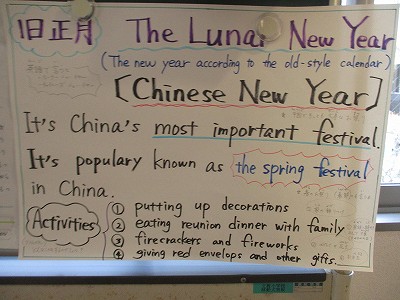 旧正月 The Lunar New Year
(The new year according to the old-style calendar)
[Chinese New Year]
It's China's most important festival.
It's populary known as the spring festival
in China.
Activities
① putting up decorations
② eating reunion dinner with family
③ firecrackers and fireworks
④ giving red envelops and other gifts.